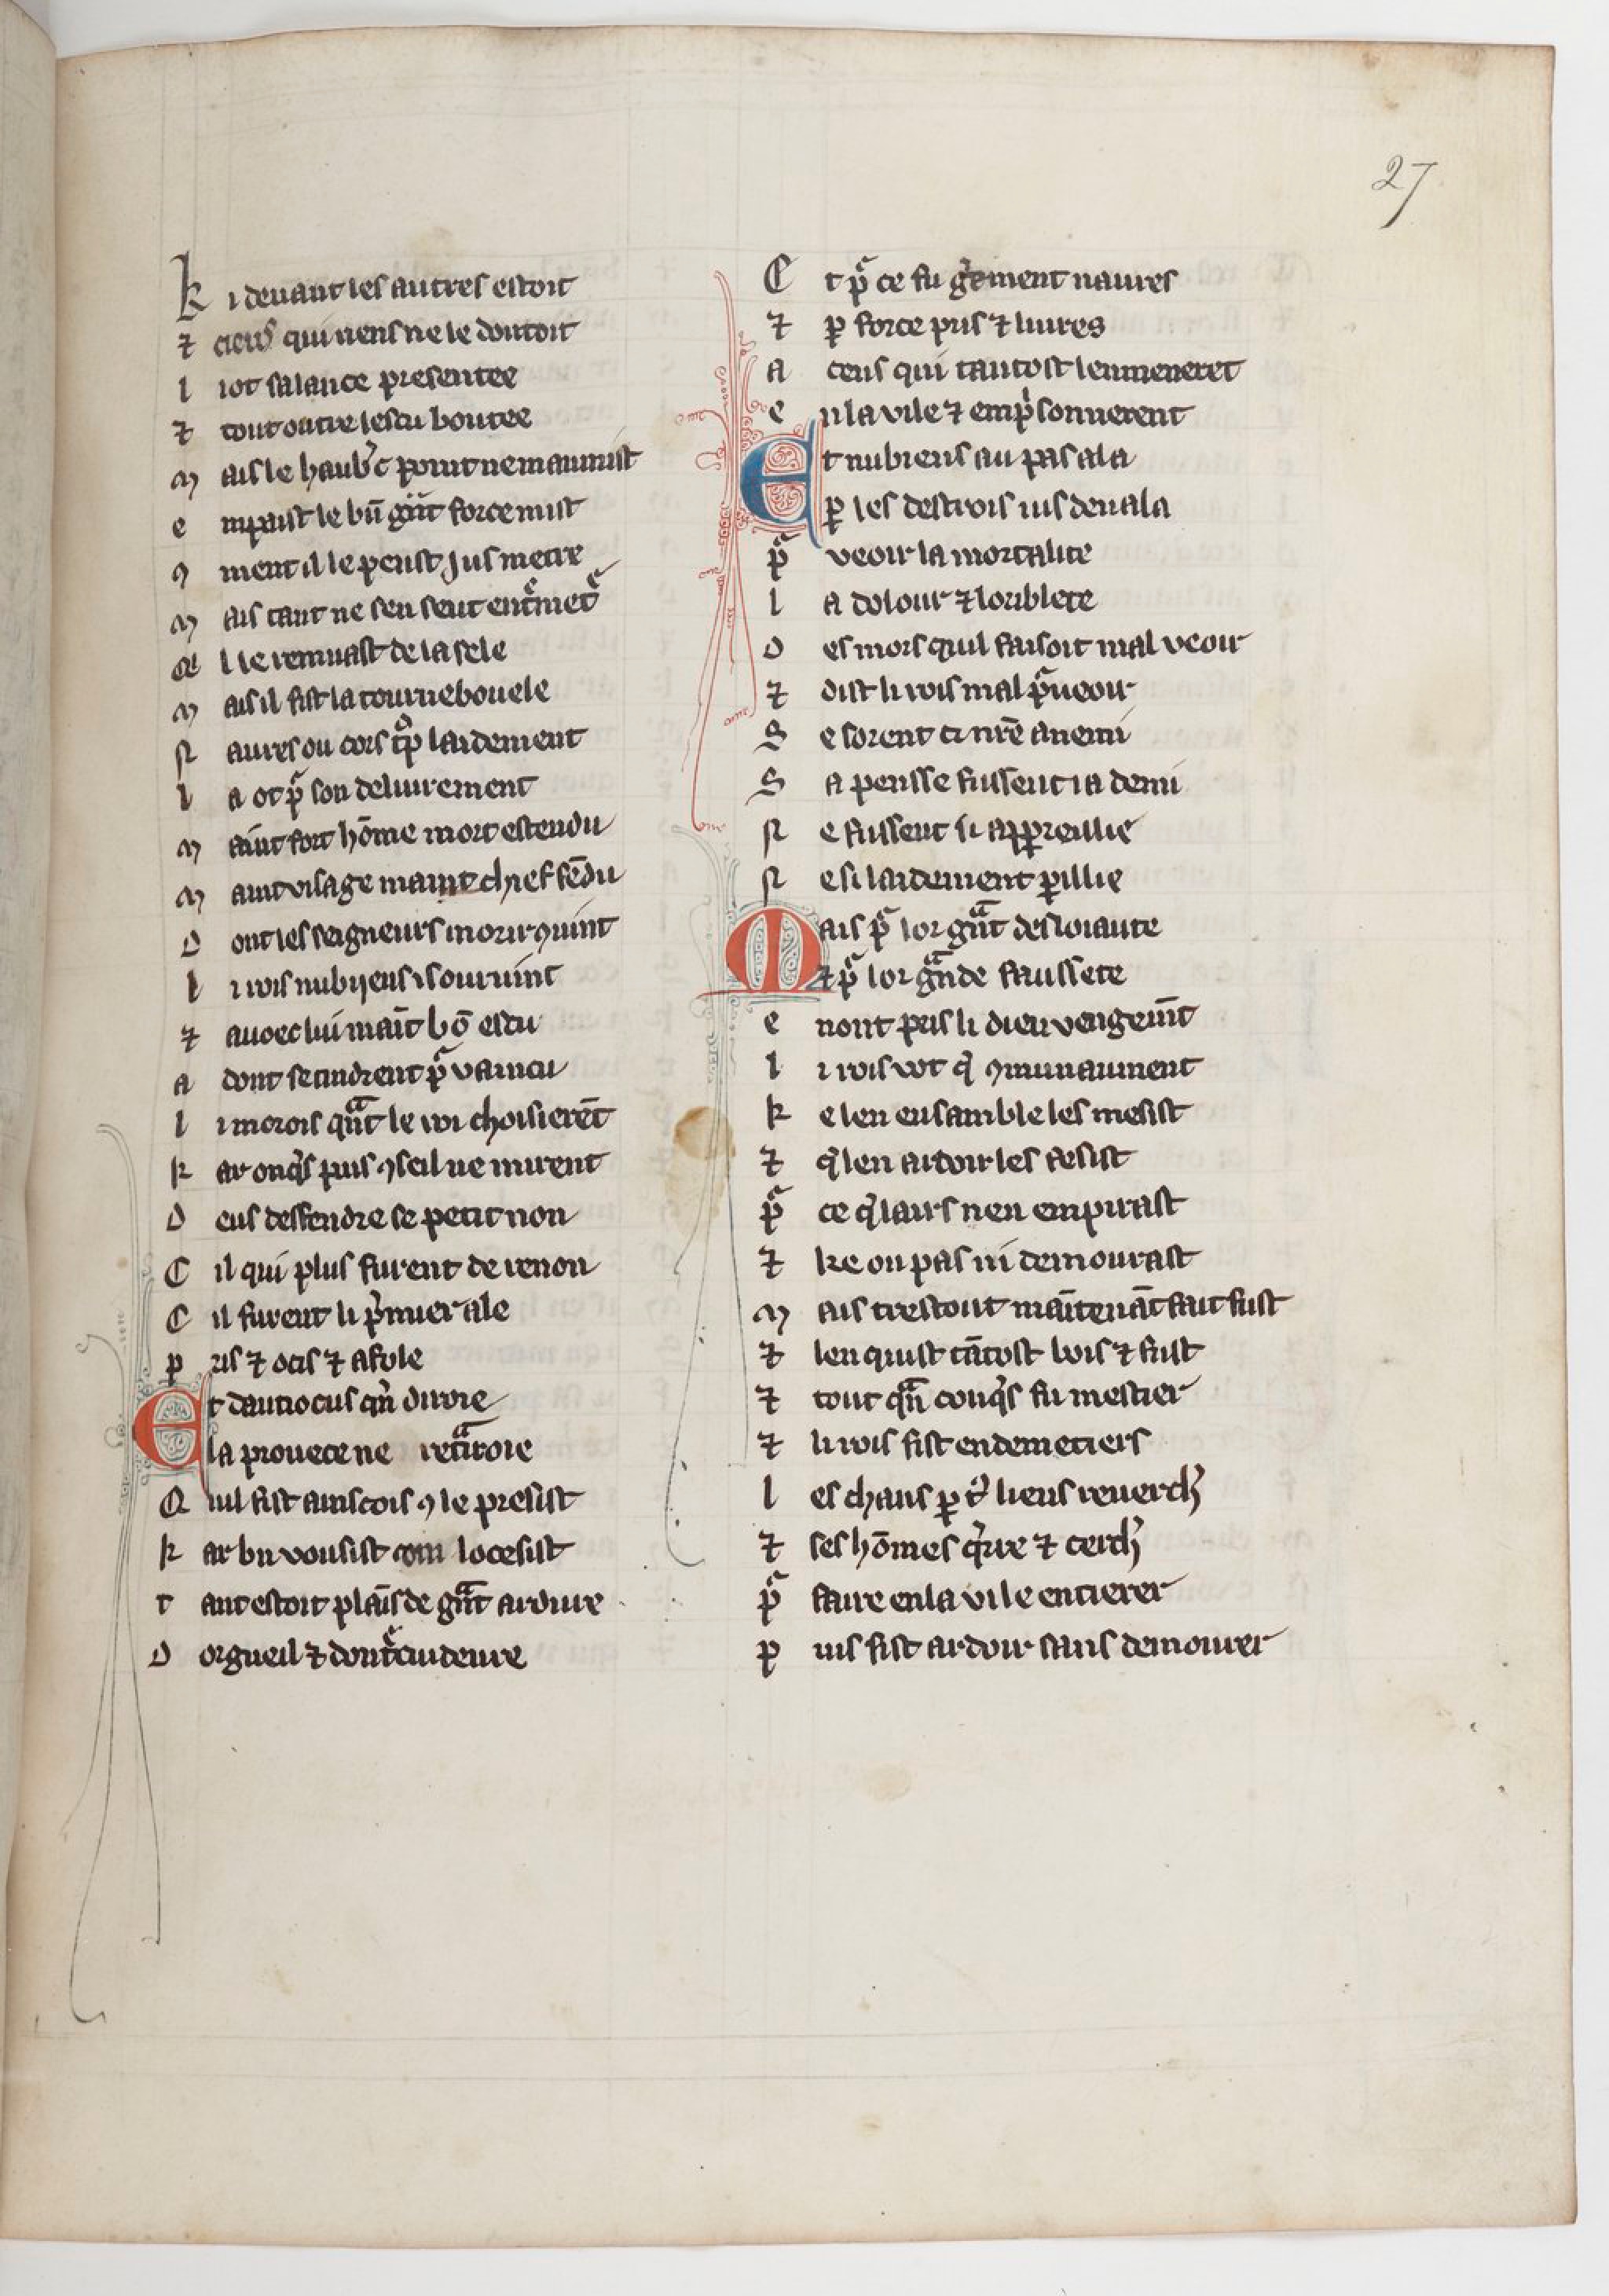 27
k i deuant les autres estoit
⁊ cicus qui riens ne le doutoit
l i ot sa lance presentee
⁊ tout outre lescu boutee
m ais le haub̓c point nemaumist
e mpaist le bn̄ gūt force mist
ꝯ ment il le peust jus metre
m ais tant ne sen seut ent̃met̃
ql le remuast de la sele
m ais il fist la tourneboucle
n aures ou cors t̊p laidement
l a ot p̃ son deliurement
m aint fort hōme mort estendu
m aint uisage maint chief fēdu
d ont les seigneurs morir ꝯuint
l i rois nubijens i souruint
⁊ auoec lui maīt bō escu
a dont se tindrent p̃ vaincu
l i morois qᷓnt le roi choisierēt
k ar onq̓s puis ꝯseil ne mirent
d eus deffendre se petit non
C il qui plus furent de renon
C il furent li p̓mier ale
p ris ⁊ ocis ⁊ afole
Et dautiocus qn̄ diroie
la prouece ne retᷓiroie
Q uil fist ainscois ꝯ le presist
k ar bn vousist com locesist
t ant estoit plaīs de gᷓnt ardure
d orgueil ⁊ dont̃cuidenre
E t p̃ ce fu g̓ement naures
⁊ ꝑ force pris ⁊ liures
a ceus qui tantost lenmeneret
e n la vile ⁊ emp̓sonnerent
Et nubiens au pas ala
ꝑ les destrois ius deuala
p̃ veoir la mortalite
l a dolour ⁊ loriblete
d es mors quil faisoit mal veoir
⁊ dist li rois mal p̃ueoir
S e sorent ci nr̄e anemi
S a pensse fussent ia demi
n e fussent si apꝑreillie
n e si laidement ꝑillie
Mais p̃ lor gᷓnt desloiaute
⁊ p̃ lor gᷓnde faussete
e nont pris li dieu vengem̄t
l i rois vot q̓ ꝯmunaument
k e len ensamble les mesist
⁊ q̓ len ardoir les fesist
p̃ ce q̓ lairs nen empirast
⁊ ke on pas ni demourast
m ais trestout maītenāt fait fust
⁊ len quist tātost bois ⁊ fust
⁊ tout qᷓn conq̓s fu mestier
⁊ li rois fist endemetiers
l es chans ꝑ t̊ liens reuerch̓
⁊ ses hōmes q̓rre ⁊ cerch̓
p̃ faire en la vile entierer
p uis fist ardoir sans demourer